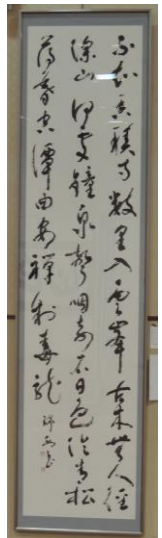 不知香積寺數里入雲峯古木無人徑
深山何處鐘泉聲咽危石日色冷青松
薄暮空潭曲安禅制毒龍